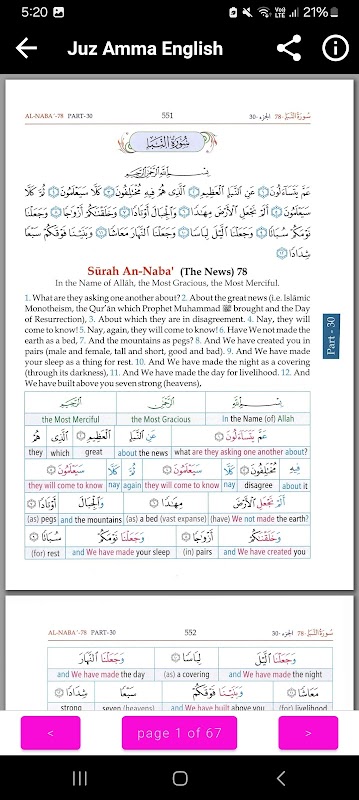 5:20
21%
Juz Amma English
AL-NABA'-78 PART-30
551
سُورَةُ النَّبَإِ -78 الجزء -30
سُورَةُ النَّبَإِ
بِسْمِ اللَّهِ الرَّحْمَٰنِ الرَّحِيمِ
عَمَّ يَتَسَاءَلُونَ ۝ عَنِ النَّبَإِ الْعَظِيمِ ۝ الَّذِي هُمْ فِيهِ مُخْتَلِفُونَ ۝ كَلَّا سَيَعْلَمُونَ ۝ ثُمَّ كَلَّا
سَيَعْلَمُونَ ۝ أَلَمْ نَجْعَلِ الْأَرْضَ مِهَادًا ۝ وَالْجِبَالَ أَوْتَادًا ۝ وَخَلَقْنَاكُمْ أَزْوَاجًا ۝ وَجَعَلْنَا
نَوْمَكُمْ سُبَاتًا ۝ وَجَعَلْنَا اللَّيْلَ لِبَاسًا ۝ وَجَعَلْنَا النَّهَارَ مَعَاشًا ۝ وَبَنَيْنَا فَوْقَكُمْ سَبْعًا
شِدَادًا ۝
Sūrah An-Naba' (The News) 78
In the Name of Allâh, the Most Gracious, the Most Merciful.
1. What are they asking one another about? 2. About the great news (i.e. Islâmic
Monotheism, the Qur'ân which Prophet Muhammad ﷺ brought and the Day
of Resurrection), 3. About which they are in disagreement. 4. Nay, they will
come to know! 5. Nay, again, they will come to know! 6. Have We not made the
earth as a bed, 7. And the mountains as pegs? 8. And We have created you in
pairs (male and female, tall and short, good and bad). 9. And We have made
your sleep as a thing for rest. 10. And We have made the night as a covering
(through its darkness), 11. And We have made the day for livelihood. 12. And
We have built above you seven strong (heavens),
Part - 30
بِسْمِ اللَّهِ الرَّحْمَٰنِ الرَّحِيمِ
the Most Merciful the Most Gracious In the Name (of) Allah
عَمَّ يَتَسَاءَلُونَ ۝ عَنِ النَّبَإِ الْعَظِيمِ ۝ الَّذِي هُمْ
they which great about the news what are they asking one another about?
فِيهِ مُخْتَلِفُونَ ۝ كَلَّا سَيَعْلَمُونَ ۝ ثُمَّ كَلَّا سَيَعْلَمُونَ ۝
they will come to know nay again they will come to know nay disagree about it
أَلَمْ نَجْعَلِ الْأَرْضَ مِهَادًا ۝ وَالْجِبَالَ أَوْتَادًا ۝
(as) pegs and the mountains (as) a bed (vast expanse) (have) We not made the earth?
وَخَلَقْنَاكُمْ أَزْوَاجًا ۝ وَجَعَلْنَا نَوْمَكُمْ سُبَاتًا ۝
(for) rest and We have made your sleep (in) pairs and We have created you
AL-NABA'-78 PART-30
552
سُورَةُ النَّبَإِ -78 الجزء -30
وَجَعَلْنَا اللَّيْلَ لِبَاسًا ۝ وَجَعَلْنَا النَّهَارَ
and We have made the day (as) a covering and We have made the night
مَعَاشًا ۝ وَبَنَيْنَا فَوْقَكُمْ سَبْعًا شِدَادًا ۝
strong seven (heavens) and We have built above you (for) livelihood
<
page 1 of 67
>